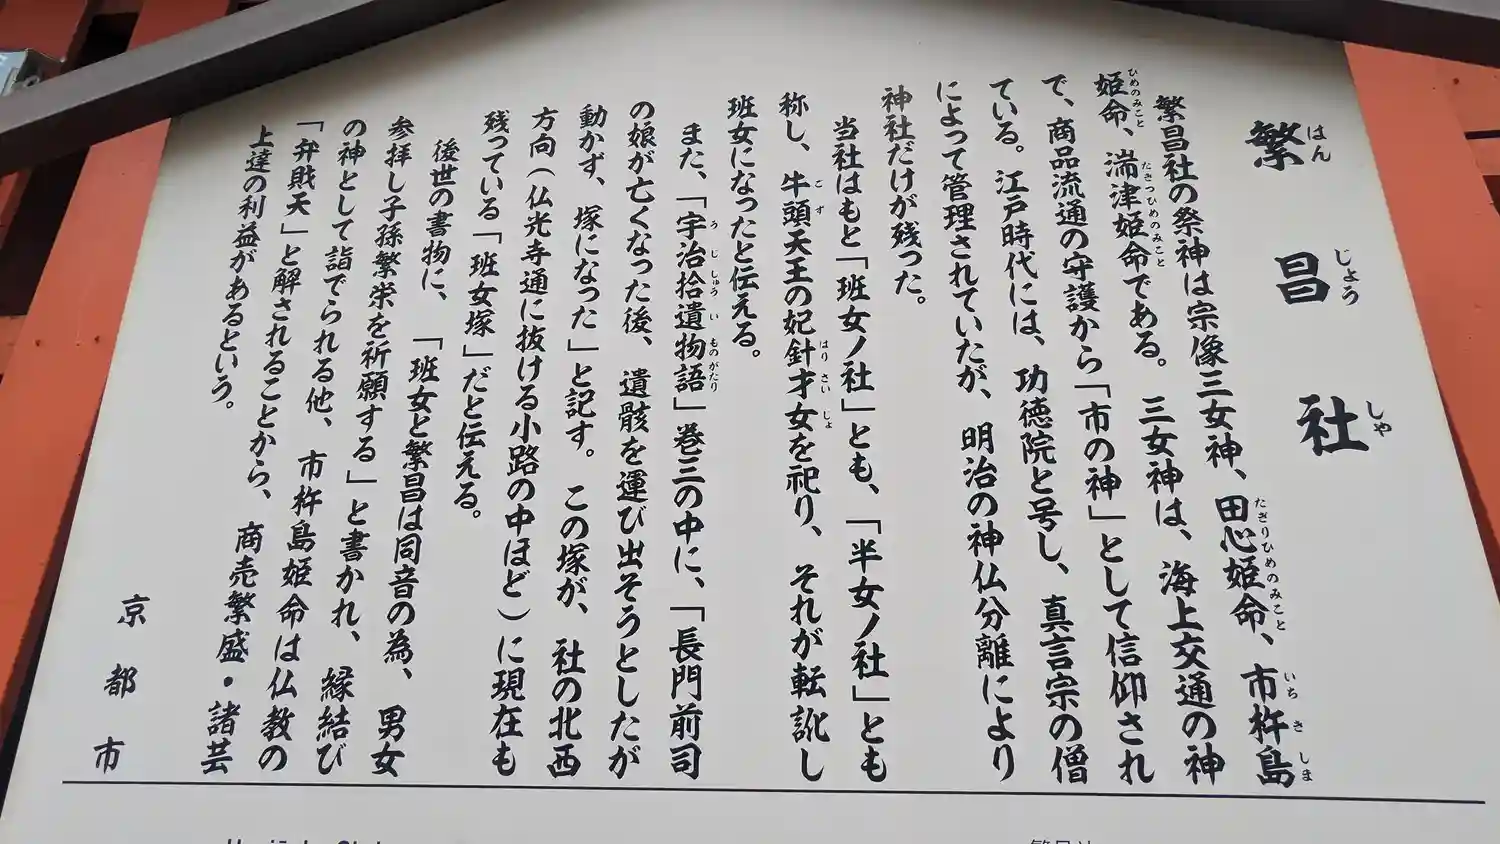 繁昌社
はんじょうしゃ
繁昌社の祭神は宗像三女神、田心姫命、市杵島
たぎりひめのみこと いちきしま
姫命、湍津姫命である。三女神は、海上交通の神
ひめのみこと たぎつひめのみこと
で、商品流通の守護から「市の神」として信仰され
ている。江戸時代には、功徳院と号し、真言宗の僧
によって管理されていたが、明治の神仏分離により
神社だけが残った。
当社はもと「班女ノ社」とも、「半女ノ社」とも
称し、牛頭天王の妃針才女を祀り、それが転訛し
ごず はりさいじょ
班女になったと伝える。
また、「宇治拾遺物語」巻三の中に、「長門前司
うじしゅういものがたり
の娘が亡くなった後、遺骸を運び出そうとしたが
動かず、塚になった」と記す。この塚が、社の北西
方向(仏光寺通に抜ける小路の中ほど)に現在も
残っている「班女塚」だと伝える。
後世の書物に、「班女と繁昌は同音の為、男女
参拝し子孫繁栄を祈願する」と書かれ、縁結び
の神として詣でられる他、市杵島姫命は仏教の
「弁財天」と解されることから、商売繁盛・諸芸
上達の利益があるという。
京都市